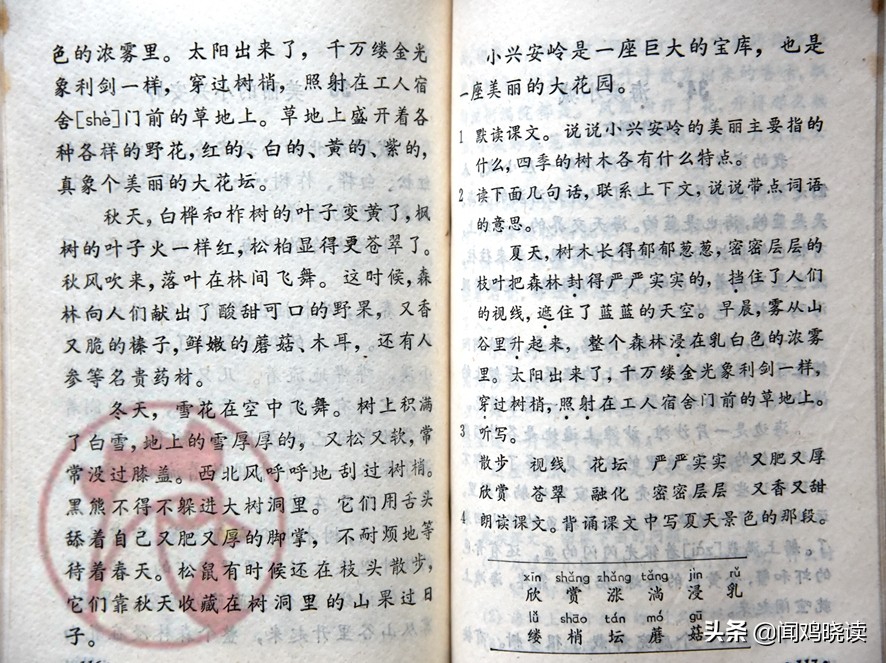 色的浓雾里。太阳出来了，千万缕金光
象利剑一样，穿过树梢，照射在工人宿
舍[shè]门前的草地上。草地上盛开着各
种各样的野花，红的、白的、黄的、紫的，
真象个美丽的大花坛。
秋天，白桦和柞树的叶子变黄了，枫
树的叶子火一样红，松柏显得更苍翠了。
秋风吹来，落叶在林间飞舞。这时候，森
林向人们献出了酸甜可口的野果，又香
又脆的榛子，鲜嫩的蘑菇、木耳，还有人
参等名贵药材。
冬天，雪花在空中飞舞。树上积满
了白雪，地上的雪厚厚的，又松又软，常
常没过膝盖。西北风呼呼地刮过树梢。
黑熊不得不躲进大树洞里。它们用舌头
舔着自己又肥又厚的脚掌，不耐烦地等
待着春天。松鼠有时候还在枝头散步，
它们靠秋天收藏在树洞里的山果过日
子。
小兴安岭是一座巨大的宝库，也是
一座美丽的大花园。
1 默读课文。说说小兴安岭的美丽主要指的
什么，四季的树木各有什么特点。
2 读下面几句话，联系上下文，说说带点词语
的意思。
夏天，树木长得郁郁葱葱，密密层层的
枝叶把森林封得严严实实的，挡住了人们
的视线，遮住了蓝蓝的天空。早晨，雾从山
谷里升起来，整个森林浸在乳白色的浓雾
里。太阳出来了，千万缕金光象利剑一样，
穿过树梢，照射在工人宿舍门前的草地上。
3 听写。
散步 视线 花坛 严严实实 又肥又厚
欣赏 苍翠 融化 密密层层 又香又甜
4 朗读课文。背诵课文中写夏天景色的那段。
xīn shǎng zhǎng tǎng jìn rǔ
欣 赏 涨 淌 浸 乳
lǚ shāo tán mó gū
缕 梢 坛 蘑 菇
头条 @闻鸡晓读